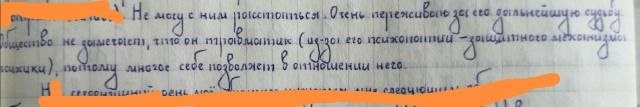 Не могу с ним расстаться. Очень переживаю за его дальнейшую судьбу
Общество не замечает, что он травматик (из-за его психопатии - защитного механизма
психики), потому многое себе позволяет в отношении него.
день